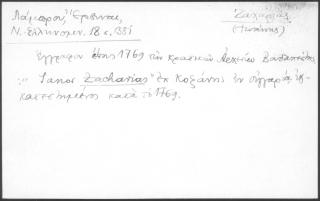 Λάμπρου, Ἔρευναι,
Ν. Ἑλληνομν. 18 σ. 381
Ζαχαρίας
(Ἰωάννης)
ἔγγραφον ἔτους 1769 τῶν κρατικῶν Ἀρχείων Βουδαπέστης
"Janos Zacharias" ἐκ Κοζάνης ἐν Οὑγγαρίᾳ ἐγ-
κατεστημένος κατὰ τὸ 1769.